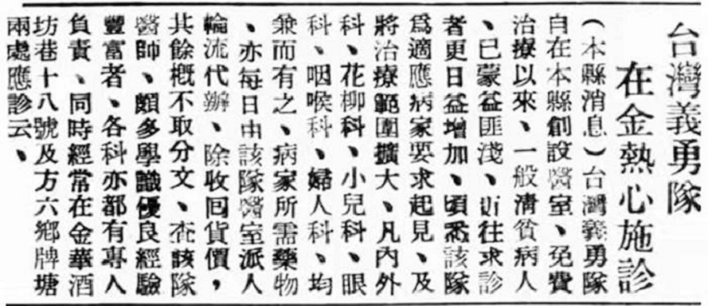 台灣義勇隊
在金熱心施診
（本縣消息）台灣義勇隊
自在本縣創設醫室、免費
治療以來、一般清貧病人
、已蒙益匪淺、近往求診
者更日益增加、頃悉該隊
爲適應病家要求起見、及
將治療範圍擴大、凡內外
科、花柳科、小兒科、眼
科、咽喉科、婦人科、均
兼而有之、病家所需藥物
、亦每日由該隊醫室派人
輪流代辦、除收回貨價，
其餘概不取分文、查該隊
醫師、頗多學識優良經驗
豐富者、各科亦都有專人
負責、同時經常在金華酒
坊巷十八號及方六鄉牌塘
兩處應診云、